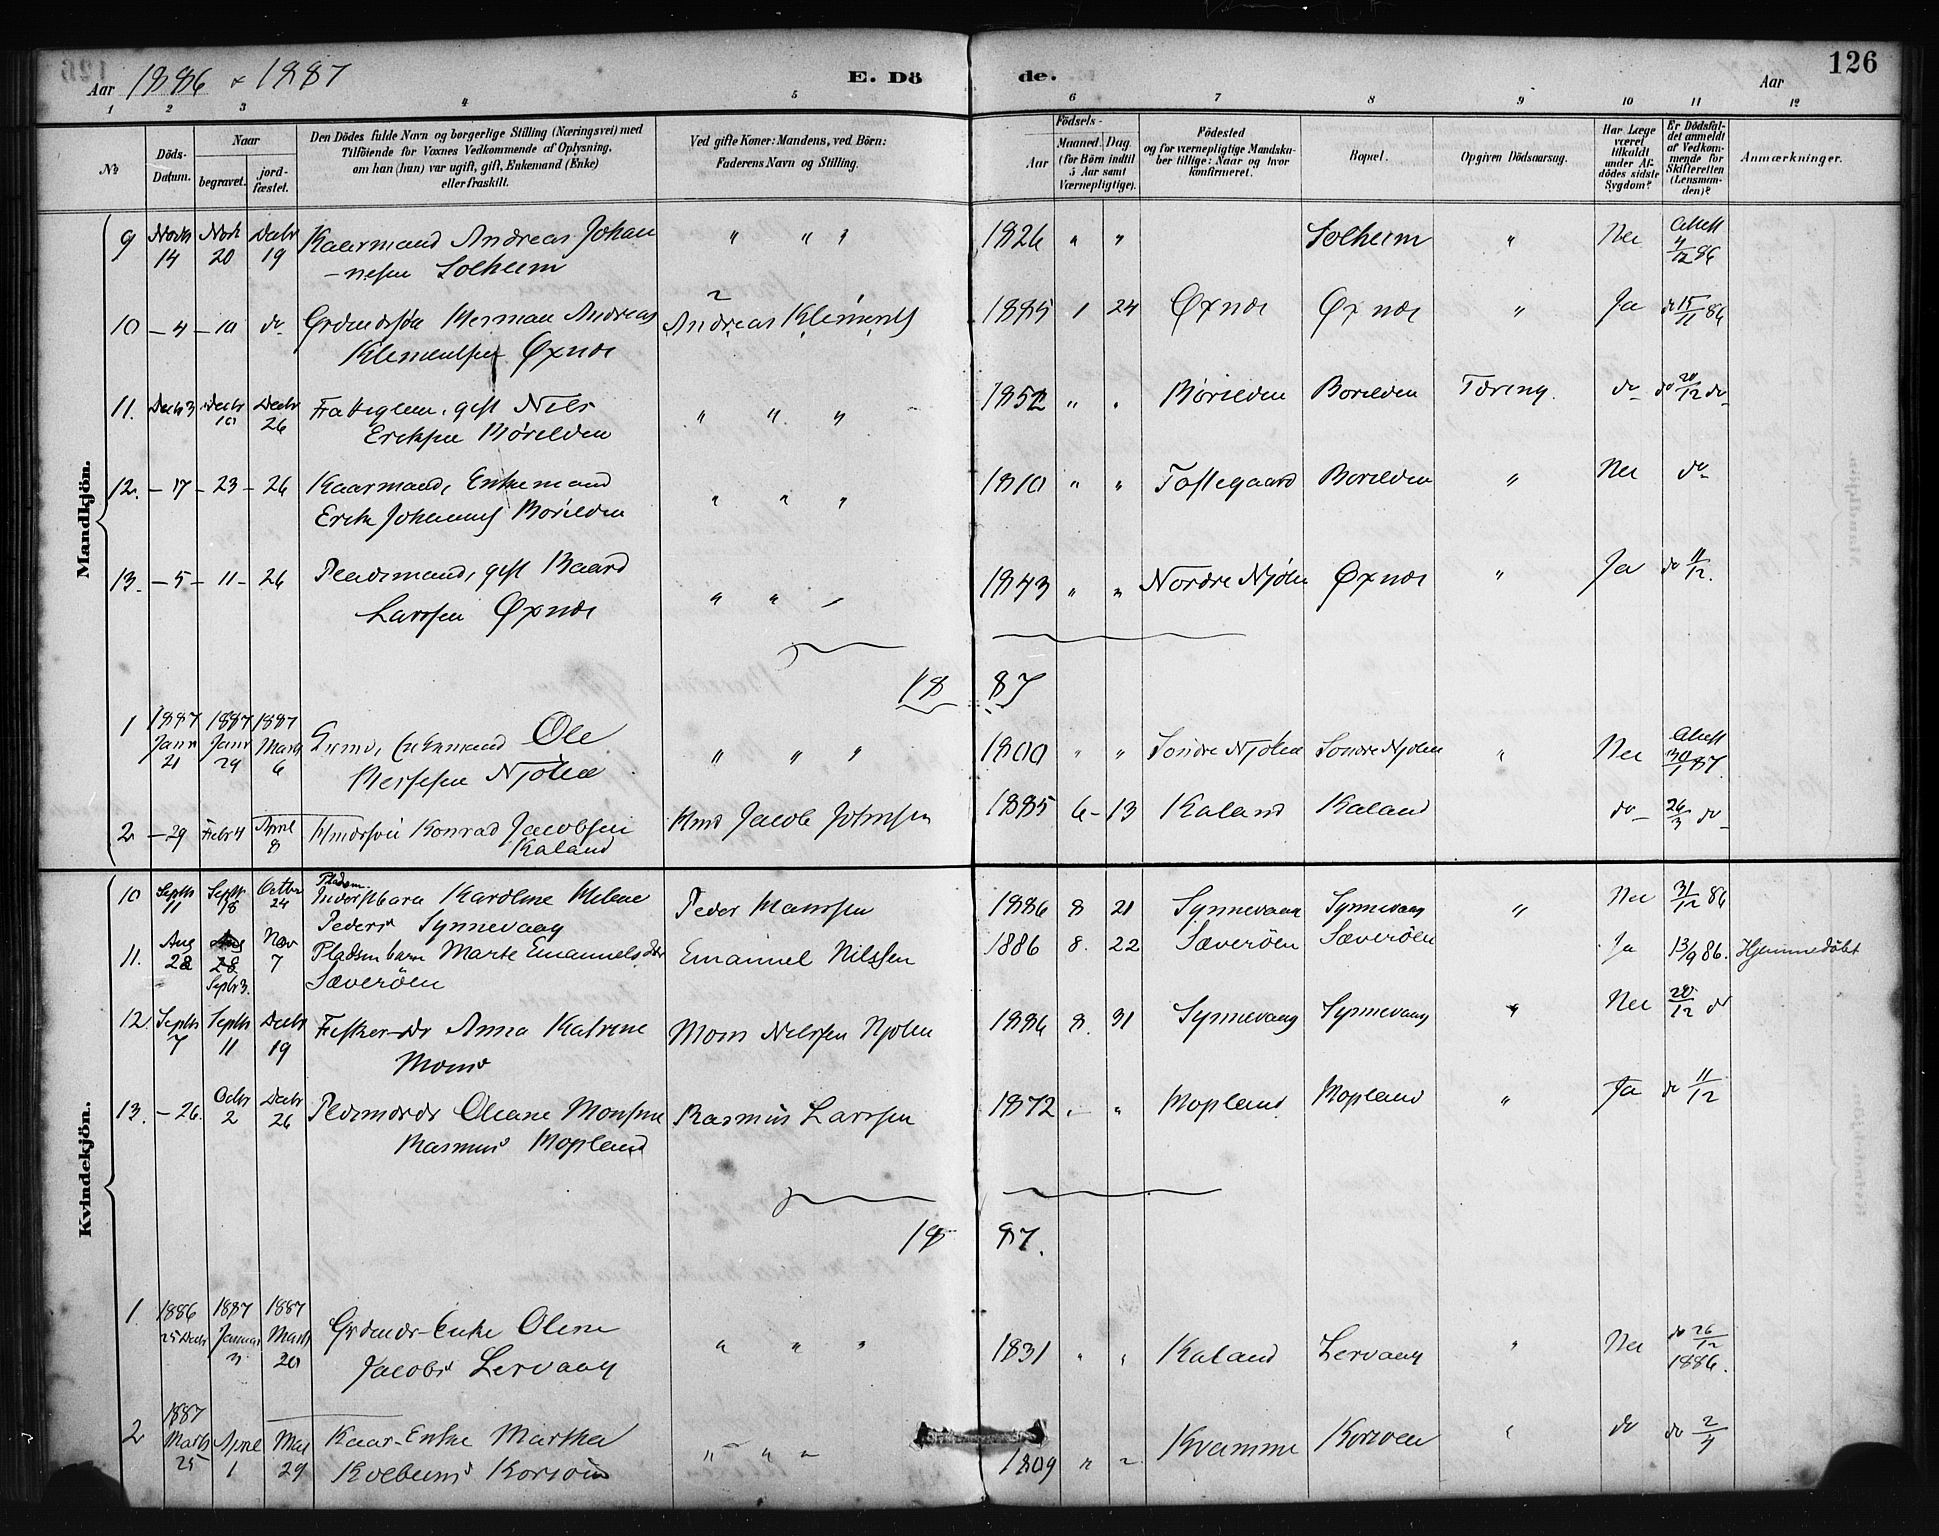 Aar 1886 & 1887 E. Dö de. Aar 126
1 2 3 4 5 6 7 8 9 10 11 12
No
Döds-Datum.
Naar
begravet.
jord-fæstet.
Den Dödes fulde Navn og borgerlige Stilling (Næringsvei) med
Tilföiende for Voxnes Vedkommende af Oplysning,
om han (hun) var ugift, gift, Enkemand (Enke)
eller fraskilt.
Ved gifte Koner: Mandens, ved Börn:
Faderens Navn og Stilling.
Födsels-
Aar
Maaned. Dag.
(for Börn indtil
5 Aar samt
Værnepligtige).
Födested
og for værnepligtige Mandska-
ber tillige: Naar og hvor
konfirmeret.
Bopæl.
Opgiven Dödsaarsag.
Har Læge
været
tilkaldt
under Af-
dödes sidste
Sygdom?
Er Dödsfal-
det anmeldt
af Vedkom-
mende for
Skifteretten
(Lensman-
den)?
Anmærkninger.
Mandkjön.
9 Novb 14 Novb 20 Decbr 19 Kaarmand Andreas Johan " " " 1826 " " Solheim " Nei Attest 4/12 86
-nesen Solheim
10 - 4 - 10 do Grdmdssøn Herman Andreas Andreas Klements 1885 1 24 Øxnes Øxnes " Ja do 15/11 86
Klementsen Øxnes
11. Decbr 3 Decbr 10 Decbr 26 Fattiglem, gift Nils " " " 1852 " " Børilden Borilden Tæring. do do 20/12 do
Eriksen Børilden
12. - 17 - 23 - 26 Kaarmand, Enkemand " " " 1810 " " Toftegaard Borilden " Nei do
Erik Johannes Børilden
13. - 5 - 11 - 26 Pladsmand, gift Baard " " " 1843 " " Nordre Njøten Øxnes " Ja do 11/12.
Larssen Øxnes
18 87
1 1887 Janr 21 1887 Janr 29 1887 Marts 6 Enkemand Ole " " " 1800 " " Søndre Njøten Søndre Njøten " Nei Attest 30/1 87.
Njøten
2 - 29 Febr 4 April 8 Konrad Jacobsen Kmd Jacob Johnsen 1885 6 - 13 Kaland Kaland do 26/3 do
Kaland
Kvindekjön.
10 Septb 11 Septb 18 Octbr 24 Pladsm. Karoline Helene Peder Monssen 1886 8 21 Synnevaag Synnevaag " Nei 31/12 86
Peders Synnevaag
11. Aug 28 Aug 28 Septbr 3. Nov 7 Pladsm barn Marte Emanuelsdtr Emanuel Nilssen 1886 8. 22 Sæverøen Sæverøen Ja 13/9 86. Hjemmedøbt
Sæverøen
12. Septb 7 Septb 11 Decbr 19 Fisker-dr Anna Katrine Mons Nilssen Njøten 1886 8. 31 Synnevaag Synnevaag " Nei 28/12 do
Mons
13. - 26. Octbr 2 Decbr 26 Oleane Monsine Rasmus Larssen 1872 " " Mopland Mopland " Ja do 11/12
Rasmus Mopland
18 87.
1. 1886 25 Decbr 1887 Januar 3 1887 Marts 20 Grdmds-Enke Oline " " " 1831 " " Kaland Lervaag " Nei do 26/12 1886.
Jacobs Lervaag
2 1887 Marts 25 April 1 Mai 29 Kaar-Enke Martha " " " 1809 " " Kvamme " do do 2/4